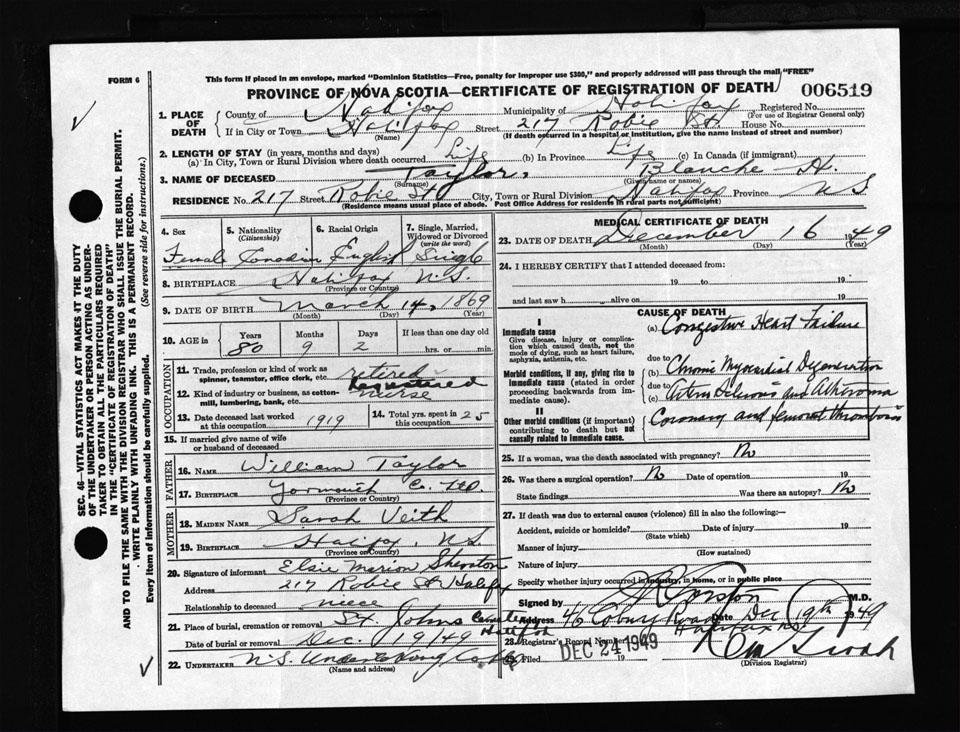 FORM 6
This form if placed in an envelope, marked "Dominion Statistics—Free, penalty for improper use $300," and properly addressed will pass through the mail "FREE"
PROVINCE OF NOVA SCOTIA—CERTIFICATE OF REGISTRATION OF DEATH 006519
1. PLACE OF DEATH County of Halifax Municipality of Halifax Registered No.
(For use of Registrar General only)
If in City or Town Halifax Street 217 Robie St. House No.
(Name) (If death occurred in a hospital or institution, give the name instead of street and number)
2. LENGTH OF STAY (in years, months and days)
(a) In City, Town or Rural Division where death occurred Life (b) In Province Life (c) In Canada (if immigrant)
3. NAME OF DECEASED Taylor, Blanche H.
(Surname) (Given name or names)
RESIDENCE No. 217 Street Robie St City, Town or Rural Division Halifax Province N S
(Residence means usual place of abode. Post Office Address for residents in rural parts not sufficient)
4. Sex 5. Nationality (Citizenship) 6. Racial Origin 7. Single, Married, Widowed or Divorced (write the word)
Female Canadian English Single
8. BIRTHPLACE Halifax N.S.
(Province or Country)
9. DATE OF BIRTH March 14, 1869
(Month) (Day) (Year)
10. AGE in Years Months Days If less than one day old
80 9 2 hrs. or min.
OCCUPATION
11. Trade, profession or kind of work as spinner, teamster, office clerk, etc. retired
registered
12. Kind of industry or business, as cotton-mill, lumbering, bank, etc. nurse
13. Date deceased last worked at this occupation 1919 14. Total yrs. spent in this occupation 25
15. If married give name of wife or husband of deceased
FATHER
16. NAME William Taylor
17. BIRTHPLACE Yarmouth Co.
(Province or Country)
MOTHER
18. MAIDEN NAME Sarah Veith
19. BIRTHPLACE Halifax, N.S.
(Province or Country)
20. Signature of informant Elsie Marion
Address 217 Robie St Halifax
Relationship to deceased niece
21. Place of burial, cremation or removal St. Johns
Date of burial or removal Dec. 19/49
22. UNDERTAKER N.S. Undertaking
(Name and address)
MEDICAL CERTIFICATE OF DEATH
23. DATE OF DEATH December 16 1949
(Month) (Day) (Year)
24. I HEREBY CERTIFY that I attended deceased from:
19 to 19
and last saw h alive on 19
CAUSE OF DEATH
I
Immediate cause (a) Congestive Heart Failure
Give disease, injury or complication which caused death, not the mode of dying, such as heart failure, asphyxia, asthenia, etc.
due to
Morbid conditions, if any, giving rise to immediate cause (stated in order proceeding backwards from immediate). (b) Chronic Myocardial Degeneration
due to
(c) Arteriosclerosis and Atheroma
II
Other morbid conditions (if important) contributing to death but not causally related to immediate cause. Coronary and femoral thrombosis
25. If a woman, was the death associated with pregnancy? No
26. Was there a surgical operation? No Date of operation 19
State findings Was there an autopsy? No
27. If death was due to external causes (violence) fill in also the following:—
Accident, suicide or homicide? Date of injury 19
(State which)
Manner of injury
(How sustained)
Nature of injury
Specify whether injury occurred in industry, in home, or in public place
Signed by M.D.
Address Date Dec 19th 1949
28. Registrar's Record Number
Filed DEC 24 1949 19
(Division Registrar)
SEC. 46—VITAL STATISTICS ACT MAKES IT THE DUTY
OF THE UNDERTAKER OR PERSON ACTING AS UNDERTAKER TO OBTAIN ALL THE PARTICULARS REQUIRED
IN THE "CERTIFICATE OF REGISTRATION OF DEATH"
AND TO FILE THE SAME WITH THE DIVISION REGISTRAR WHO SHALL ISSUE THE BURIAL PERMIT.
WRITE PLAINLY WITH UNFADING INK. THIS IS A PERMANENT RECORD.
Every item of Information should be carefully supplied. (See reverse side for instructions.)